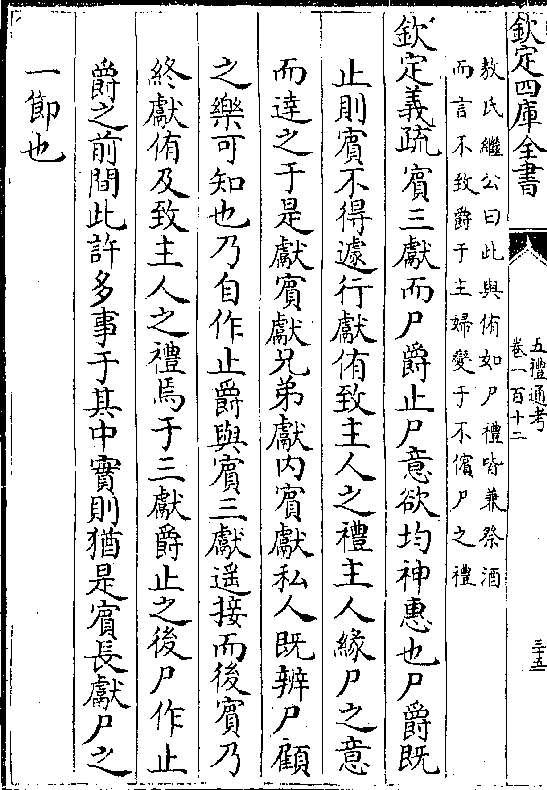 欽定四庫全書
五禮通考
卷一百十二
三十五
敖氏繼公曰此與侑如尸禮皆兼祭酒
而言不致爵于主婦變于不儐尸之禮
欽定義疏賓三獻而尸爵止尸意欲均神惠也尸爵既
止則賓不得遽行獻侑致主人之禮主人緣尸之意
而達之于是獻賓獻兄弟獻内賓獻私人既辨尸顧
之樂可知也乃自作止爵與賓三獻遥接而後賓乃
終獻侑及致主人之禮焉于三獻爵止之後尸作止
爵之前間此許多事于其中實則猶是賓長獻尸之
一節也